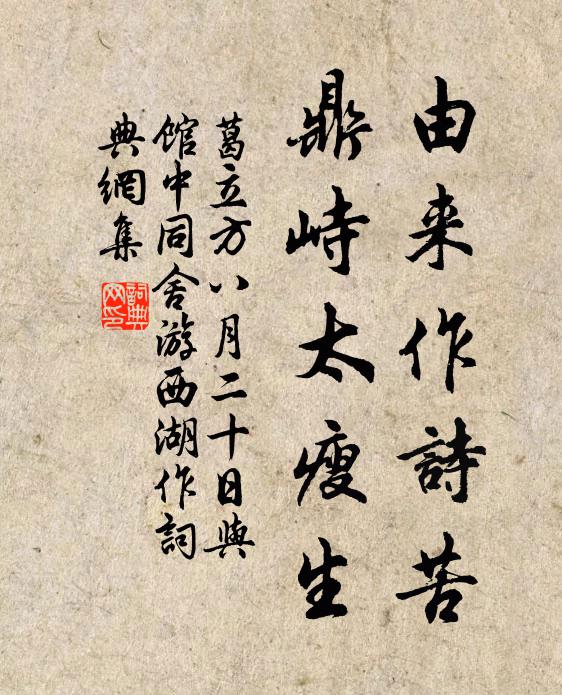 由来作詩苦
鼎峙太瘦生
葛立方八月二十日與
館中同舍游西湖作詞
典網集
詞典
网印